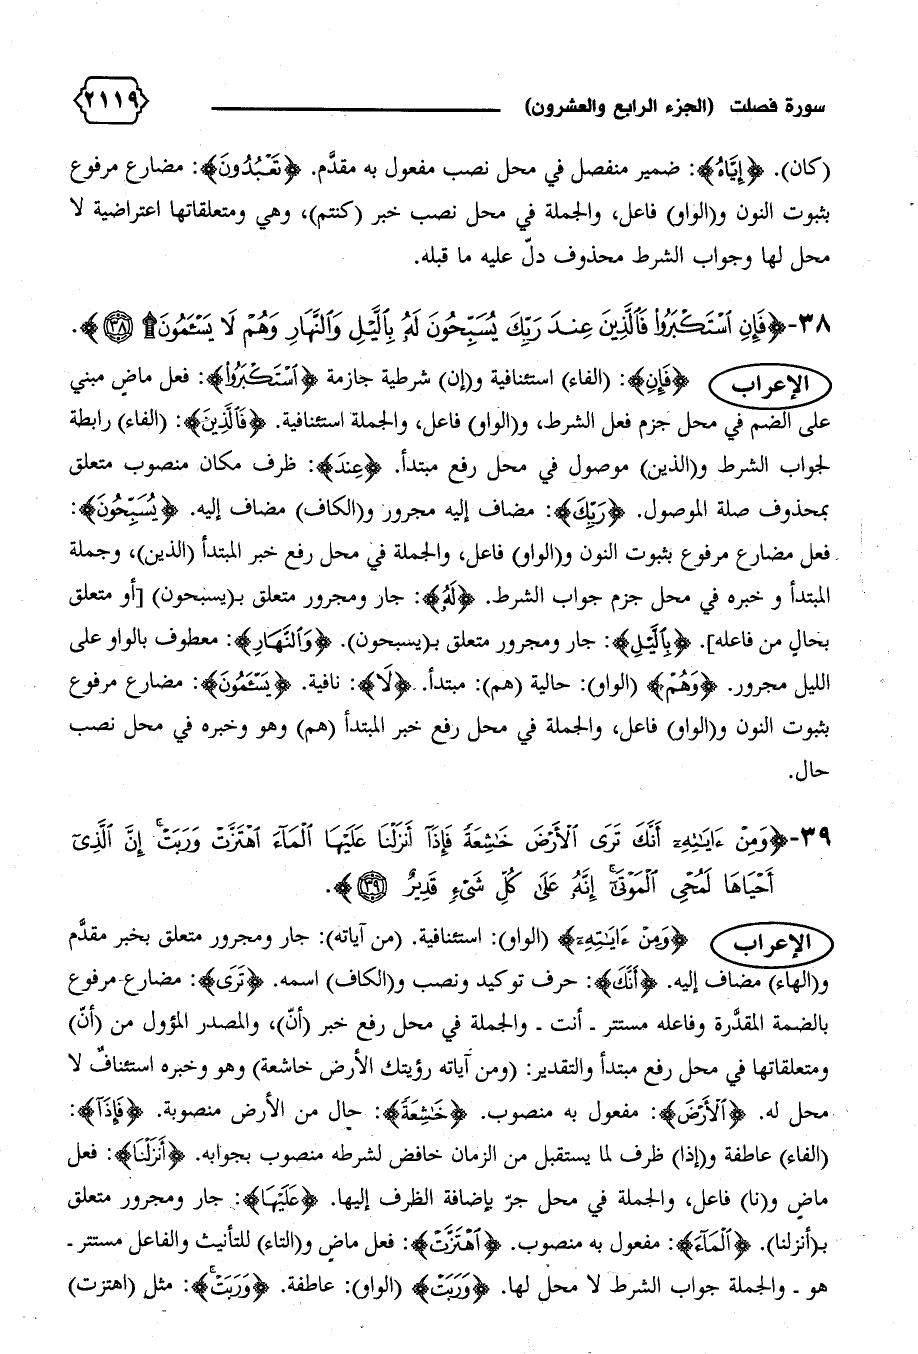 سورة فصلت (الجزء الرابع والعشرون) ٢١١٩
(كان). ﴿إِيَّاهُ﴾: ضمير منفصل في محل نصب مفعول به مقدَّم. ﴿تَعْبُدُونَ﴾: مضارع مرفوع
بثبوت النون و(الواو) فاعل، والجملة في محل نصب خبر (كنتم)، وهي ومتعلقاتها اعتراضية لا
محل لها وجواب الشرط محذوف دلّ عليه ما قبله.
٣٨-﴿فَإِنِ ٱسْتَكْبَرُوا۟ فَٱلَّذِينَ عِندَ رَبِّكَ يُسَبِّحُونَ لَهُۥ بِٱلَّيْلِ وَٱلنَّهَارِ وَهُمْ لَا يَسْـَٔمُونَ ۩ ٣٨﴾.
الإعراب ﴿فَإِنِ﴾: (الفاء) استئنافية و(إن) شرطية جازمة ﴿ٱسْتَكْبَرُوا۟﴾: فعل ماضٍ مبني
على الضم في محل جزم فعل الشرط، و(الواو) فاعل، والجملة استئنافية. ﴿فَٱلَّذِينَ﴾: (الفاء) رابطة
لجواب الشرط و(الذين) موصول في محل رفع مبتدأ. ﴿عِندَ﴾: ظرف مكان منصوب متعلق
بمحذوف صلة الموصول. ﴿رَبِّكَ﴾: مضاف إليه مجرور و(الكاف) مضاف إليه. ﴿يُسَبِّحُونَ﴾:
فعل مضارع مرفوع بثبوت النون و(الواو) فاعل، والجملة في محل رفع خبر المبتدأ (الذين)، وجملة
المبتدأ و خبره في محل جزم جواب الشرط. ﴿لَهُۥ﴾: جار ومجرور متعلق بـ(يسبحون) [أو متعلق
بحالٍ من فاعله]. ﴿بِٱلَّيْلِ﴾: جار ومجرور متعلق بـ(يسبحون). ﴿وَٱلنَّهَارِ﴾: معطوف بالواو على
الليل مجرور. ﴿وَهُمْ﴾ (الواو): حالية (هم): مبتدأ. ﴿لَا﴾: نافية. ﴿يَسْـَٔمُونَ﴾: مضارع مرفوع
بثبوت النون و(الواو) فاعل، والجملة في محل رفع خبر المبتدأ (هم) وهو وخبره في محل نصب
حال.
٣٩-﴿وَمِنْ ءَايَـٰتِهِۦٓ أَنَّكَ تَرَى ٱلْأَرْضَ خَـٰشِعَةً فَإِذَآ أَنزَلْنَا عَلَيْهَا ٱلْمَآءَ ٱهْتَزَّتْ وَرَبَتْ ۚ إِنَّ ٱلَّذِىٓ
أَحْيَاهَا لَمُحْىِ ٱلْمَوْتَىٰٓ ۚ إِنَّهُۥ عَلَىٰ كُلِّ شَىْءٍ قَدِيرٌ ٣٩﴾.
الإعراب ﴿وَمِنْ ءَايَـٰتِهِۦٓ﴾ (الواو): استئنافية. (من آياته): جار ومجرور متعلق بخبر مقدَّم
و(الهاء) مضاف إليه. ﴿أَنَّكَ﴾: حرف توكيد ونصب و(الكاف) اسمه. ﴿تَرَى﴾: مضارع مرفوع
بالضمة المقدَّرة وفاعله مستتر ـ أنت ـ والجملة في محل رفع خبر (أنّ)، والمصدر المؤول من (أنّ)
ومتعلقاتها في محل رفع مبتدأ والتقدير: (ومن آياته رؤيتك الأرض خاشعة) وهو وخبره استئنافٌ لا
محل له. ﴿ٱلْأَرْضَ﴾: مفعول به منصوب. ﴿خَـٰشِعَةً﴾: حال من الأرض منصوبة. ﴿فَإِذَآ﴾:
(الفاء) عاطفة و(إذا) ظرف لما يستقبل من الزمان خافض لشرطه منصوب بجوابه. ﴿أَنزَلْنَا﴾: فعل
ماضٍ و(نا) فاعل، والجملة في محل جرّ بإضافة الظرف إليها. ﴿عَلَيْهَا﴾: جار ومجرور متعلق
بـ(أنزلنا). ﴿ٱلْمَآءَ﴾: مفعول به منصوب. ﴿ٱهْتَزَّتْ﴾: فعل ماضٍ و(التاء) للتأنيث والفاعل مستتر ـ
هو ـ والجملة جواب الشرط لا محل لها. ﴿وَرَبَتْ﴾ (الواو): عاطفة. ﴿وَرَبَتْ ۚ﴾: مثل (اهتزت)